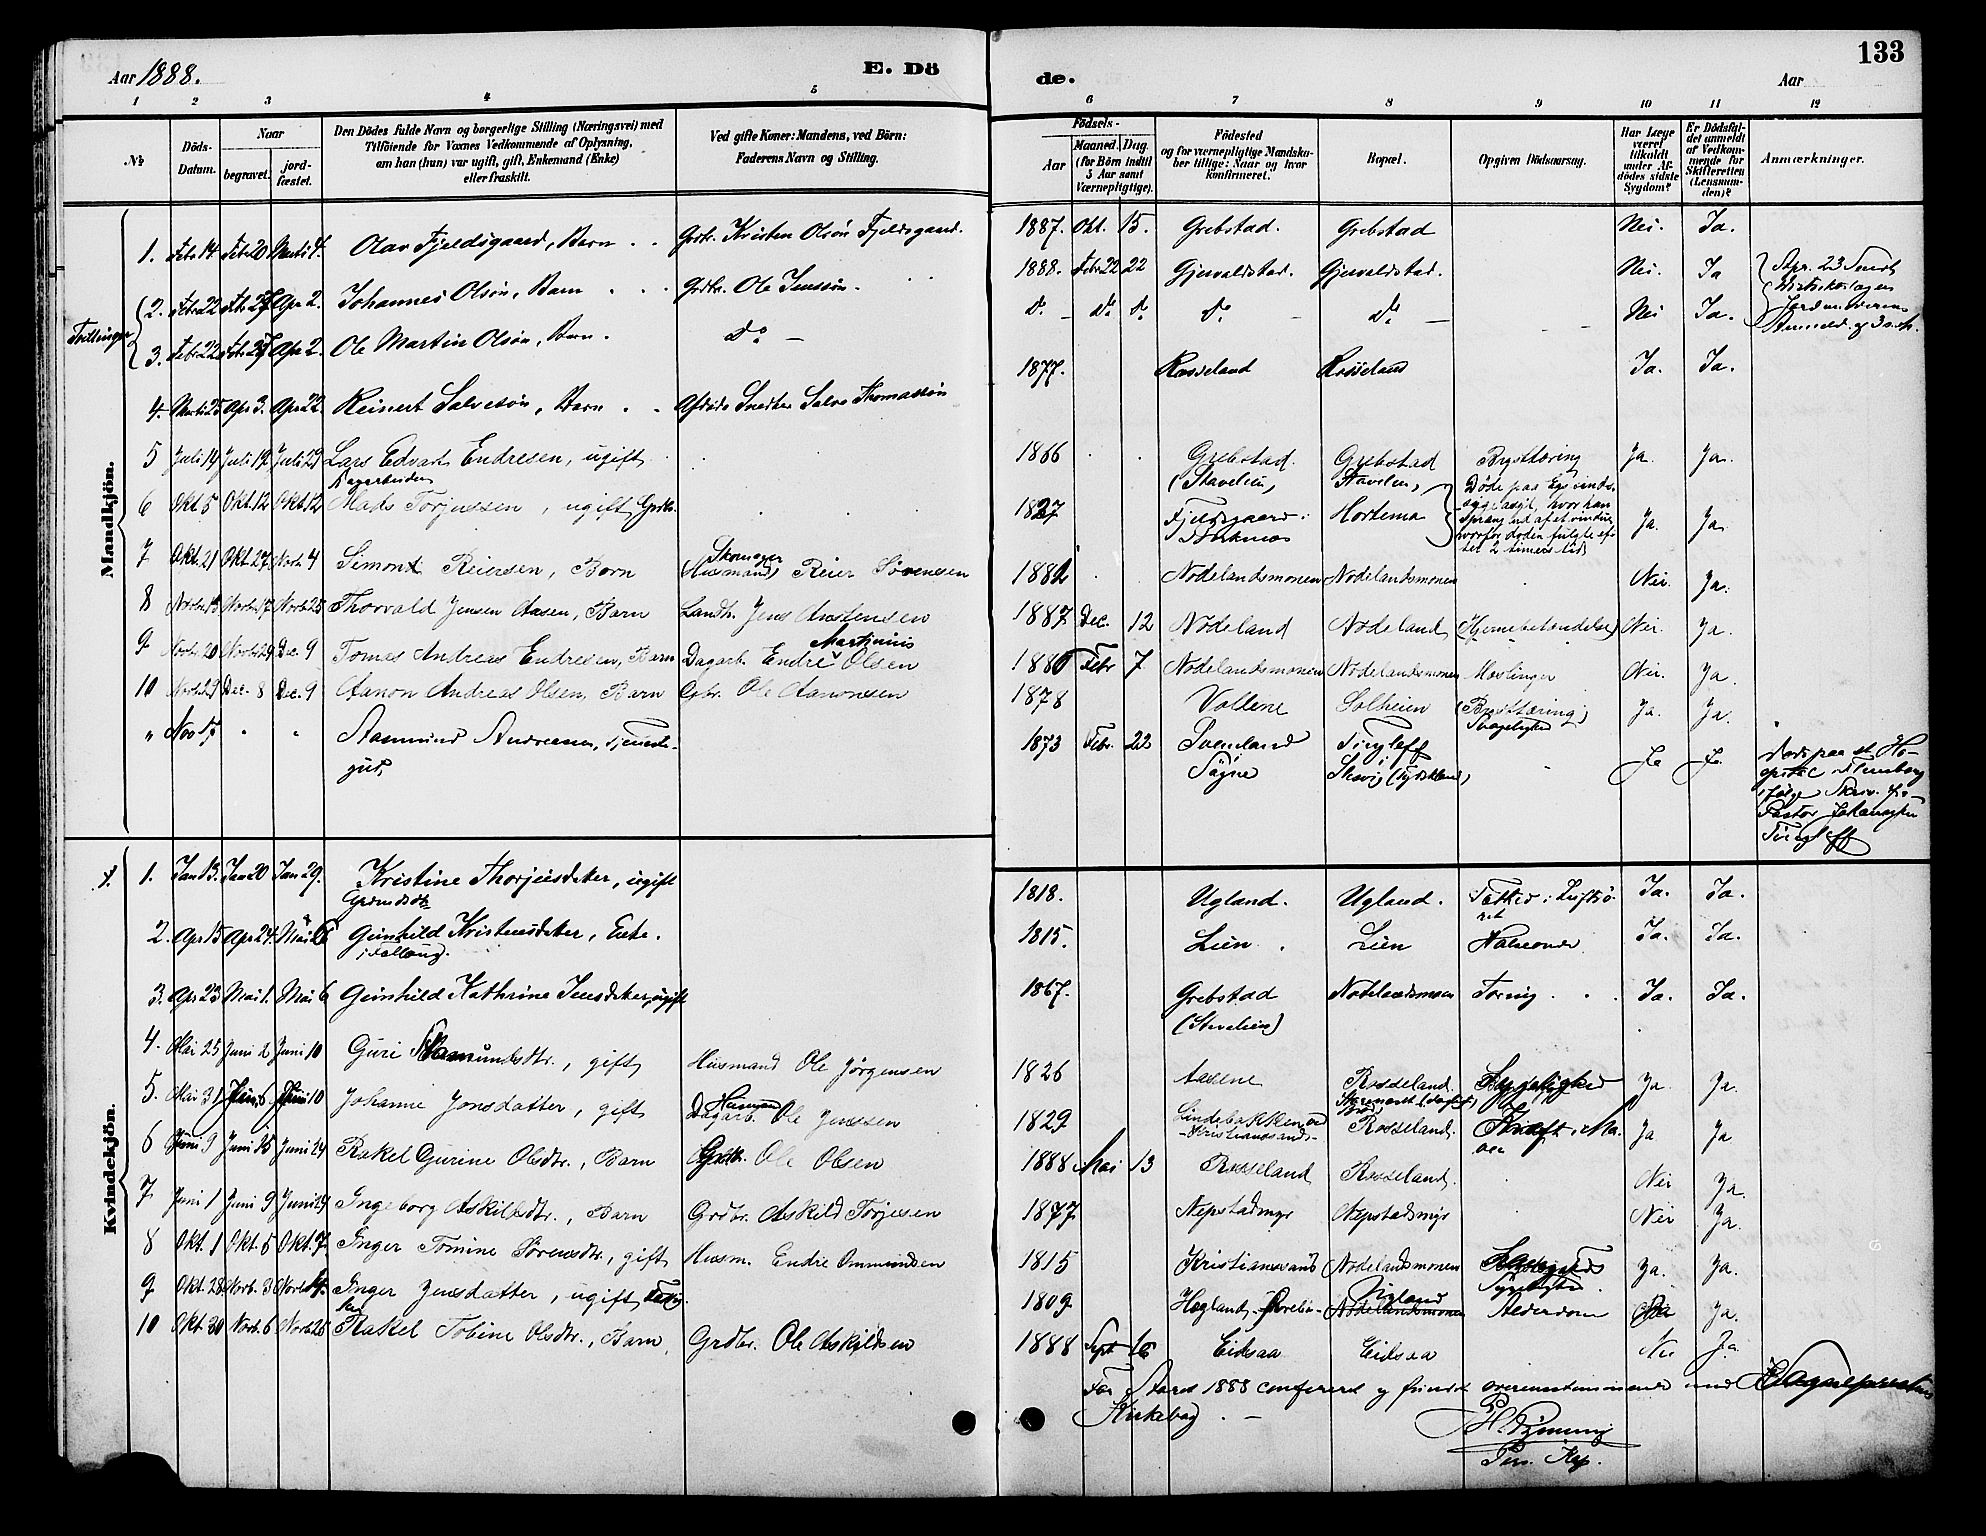 Aar 1888. E. Dö de. Aar 133
1 2 3 4 5 6 7 8 9 10 11 12
No
Döds-Datum.
Naar
begravet.
jord-fæstet.
Den Dödes fulde Navn og borgerlige Stilling (Næringsvei) med
Tilföiende for Voxnes Vedkommende af Oplysning,
am han (hun) var ugift, gift, Enkemand (Enke)
eller fraskilt.
Ved gifte Koner: Mandens, ved Börn:
Faderens Navn og Stilling.
Födsels-
Aar
Maaned. Dag.
(for Börn indtil
5 Aar samt
Værnepligtige).
Födested
og for værnepligtige Mandska-
ber tillige: Naar og hvor
konfirmeret.
Bopæl.
Opgiven Dödsaarsag.
Har Læge
været
tilkaldt
under Af-
dödes sidste
Sygdom?
Er Dödsfal-
det anmeldt
af Vedkom-
mende for
Skifteretten
(Lensman-
den)?
Anmærkninger.
Mandkjön.
1. Febr 14 Febr 20 Marts 4. Olav Fjeldsgaard, Barn Grdbr. Kristen Olsön Fjeldsgaard. 1887. Okt. 15. Grebstad. Grebstad Nei. Ja.
Tvillinger
2. Febr 22 Apr 2. Johannes Olsön, Barn Grdbr. Ole Jenssön. 1888. Febr 22 22 Gjervaldstad. Gjervaldstad. Nei. Ja
3. Febr 22 Apr 2. Ole Martin Olsön, Barn. Do Do Do Do Do Do Nei Ja.
Apr. 23
4. Marts 25 Apr 3. Apr 22. Reinert Salvesön, Barn Afdöde Snedker Salve Thomassön 1877. Rosseland Rosseland Ja. Ja.
5 Juli 14 Juli 19 Juli 29 Lars Edvart Endresen, ugift 1866 Grebstad. (Stavelien) Grebstad Stavelien Brysttæring Ja. Ja.
6 Okt. 5 Okt. 12 Okt. 12 Dagarbeider Mads Torjussen, ugift Grdbr. 1827 Fjeldsgaard i Hortema
Døde paa Egs sinds-
sygeasyl, hvor han
sprang ud af et vindue
hvorfor døden fulgte ef-
ter 2 timers tid
Ja. Ja.
7 Okt. 21 Okt. 27 Novb 4 Simon Reiersen, Barn Skomager Husmand Reier Sørensen 1882 Nodelandsmonen Nodelandsmonen Nei. Ja.
8 Novbr 13 Novbr 17 Novb 25 Thorvald Jensen Aasen, Barn Landh. Jens Aanensen 1887 Dec. 12 Nodeland Nodeland (Hjernebetændelse) Nei. Ja.
9 Novb. 20 Novbr 29 Dec. 9 Tomas Andreas Endresen, Barn Dagarb. Endre Martinius Olsen 1886 Febr 7 Nodelandsmonen Nodelandsmonen Meslinger Nei. Ja.
10 Novb 29 Dec. 8 Dec. 9 Aanon Andreas Olsen, Barn Gbr. Ole Aanonsen 1878 Vollene Solheien (Brysttæring) Svagelighed Ja. Ja.
" Nov 17 " " Aasmund Andreasen, tjeneste-
gut, 1873 Febr. 22 Sveinland Søgne Tingleff i Slesvig (Tydskland) Ja Ja
død paa et Ho-
spital i Flensborg
ifølge Skriv. fra
Pastor Johannsen
Tingleff
Kvindekjön.
1. Jan 13. Jan 20 Jan 29. Kristine Thorjusdatter, ugift 1818. Ugland. Ugland. Ja. Ja.
2. Apr 15 Apr 24. Mai 6 Gunhild Kristensdatter, Enke. 1815. Lien Lien Halsonde Ja. Ja.
3. Apr 23 Mai 1. Mai 6 Gunhild Kathrine Jensdatter, ugift 1867. Grebstad (Stavelien) Nodelandsmoen Tæring Ja. Ja.
4. Mai 25 Juni 2 Juni 10 Guri Aamundsdtr., gift Husmand Ole Jørgensen 1826 Aasene Rosseland. Sygelighed Ja. Ja.
5. Mai 31 Juni 6 Juni 10 Johanne Jonsdatter, gift Husmand Dagarb. Ole Jenssen 1829 Lindebakken, ved Kristianssand Rosseland. Kræft i Ma-
ven Ja Ja
6 Juni 9 Juni 15 Juni 24 Rakel Gurine Olsdtr., Barn Grdbr. Ole Olsen 1888 Mai 13 Rosseland Rosseland. Nei Ja.
7 Juni 1 Juni 9 Juni 24 Ingeborg Askildsdtr., Barn Grdbr. Askild Torjesen 1877 Nepstadmyr Nepstadmyr Nei Ja.
8 Okt. 1 Okt. 5 Okt. 7 Inger Tomine Sørensdtr., gift Husm. Endre Ommundsen 1815 Kristianssand Nodelandsmonen Sygelighed. Ja. Ja.
9 Okt. 28 Novb. 3 Novb 4. Inger Jensdatter, ugift 1809 Hægland, Ugland Nodelandsmonen Alderdom Ja.
10 Okt 30 Novb. 6 Novb 25 Rakel Tobine Olsdtr., Barn, Grdbr. Ole Askildsen 1888 Sept 16 Eidsaa Eidsaa Nei Ja
For Aaret 1888 confereret og fundet overensstemmende med
Kirkebog.
Pers. Kap.